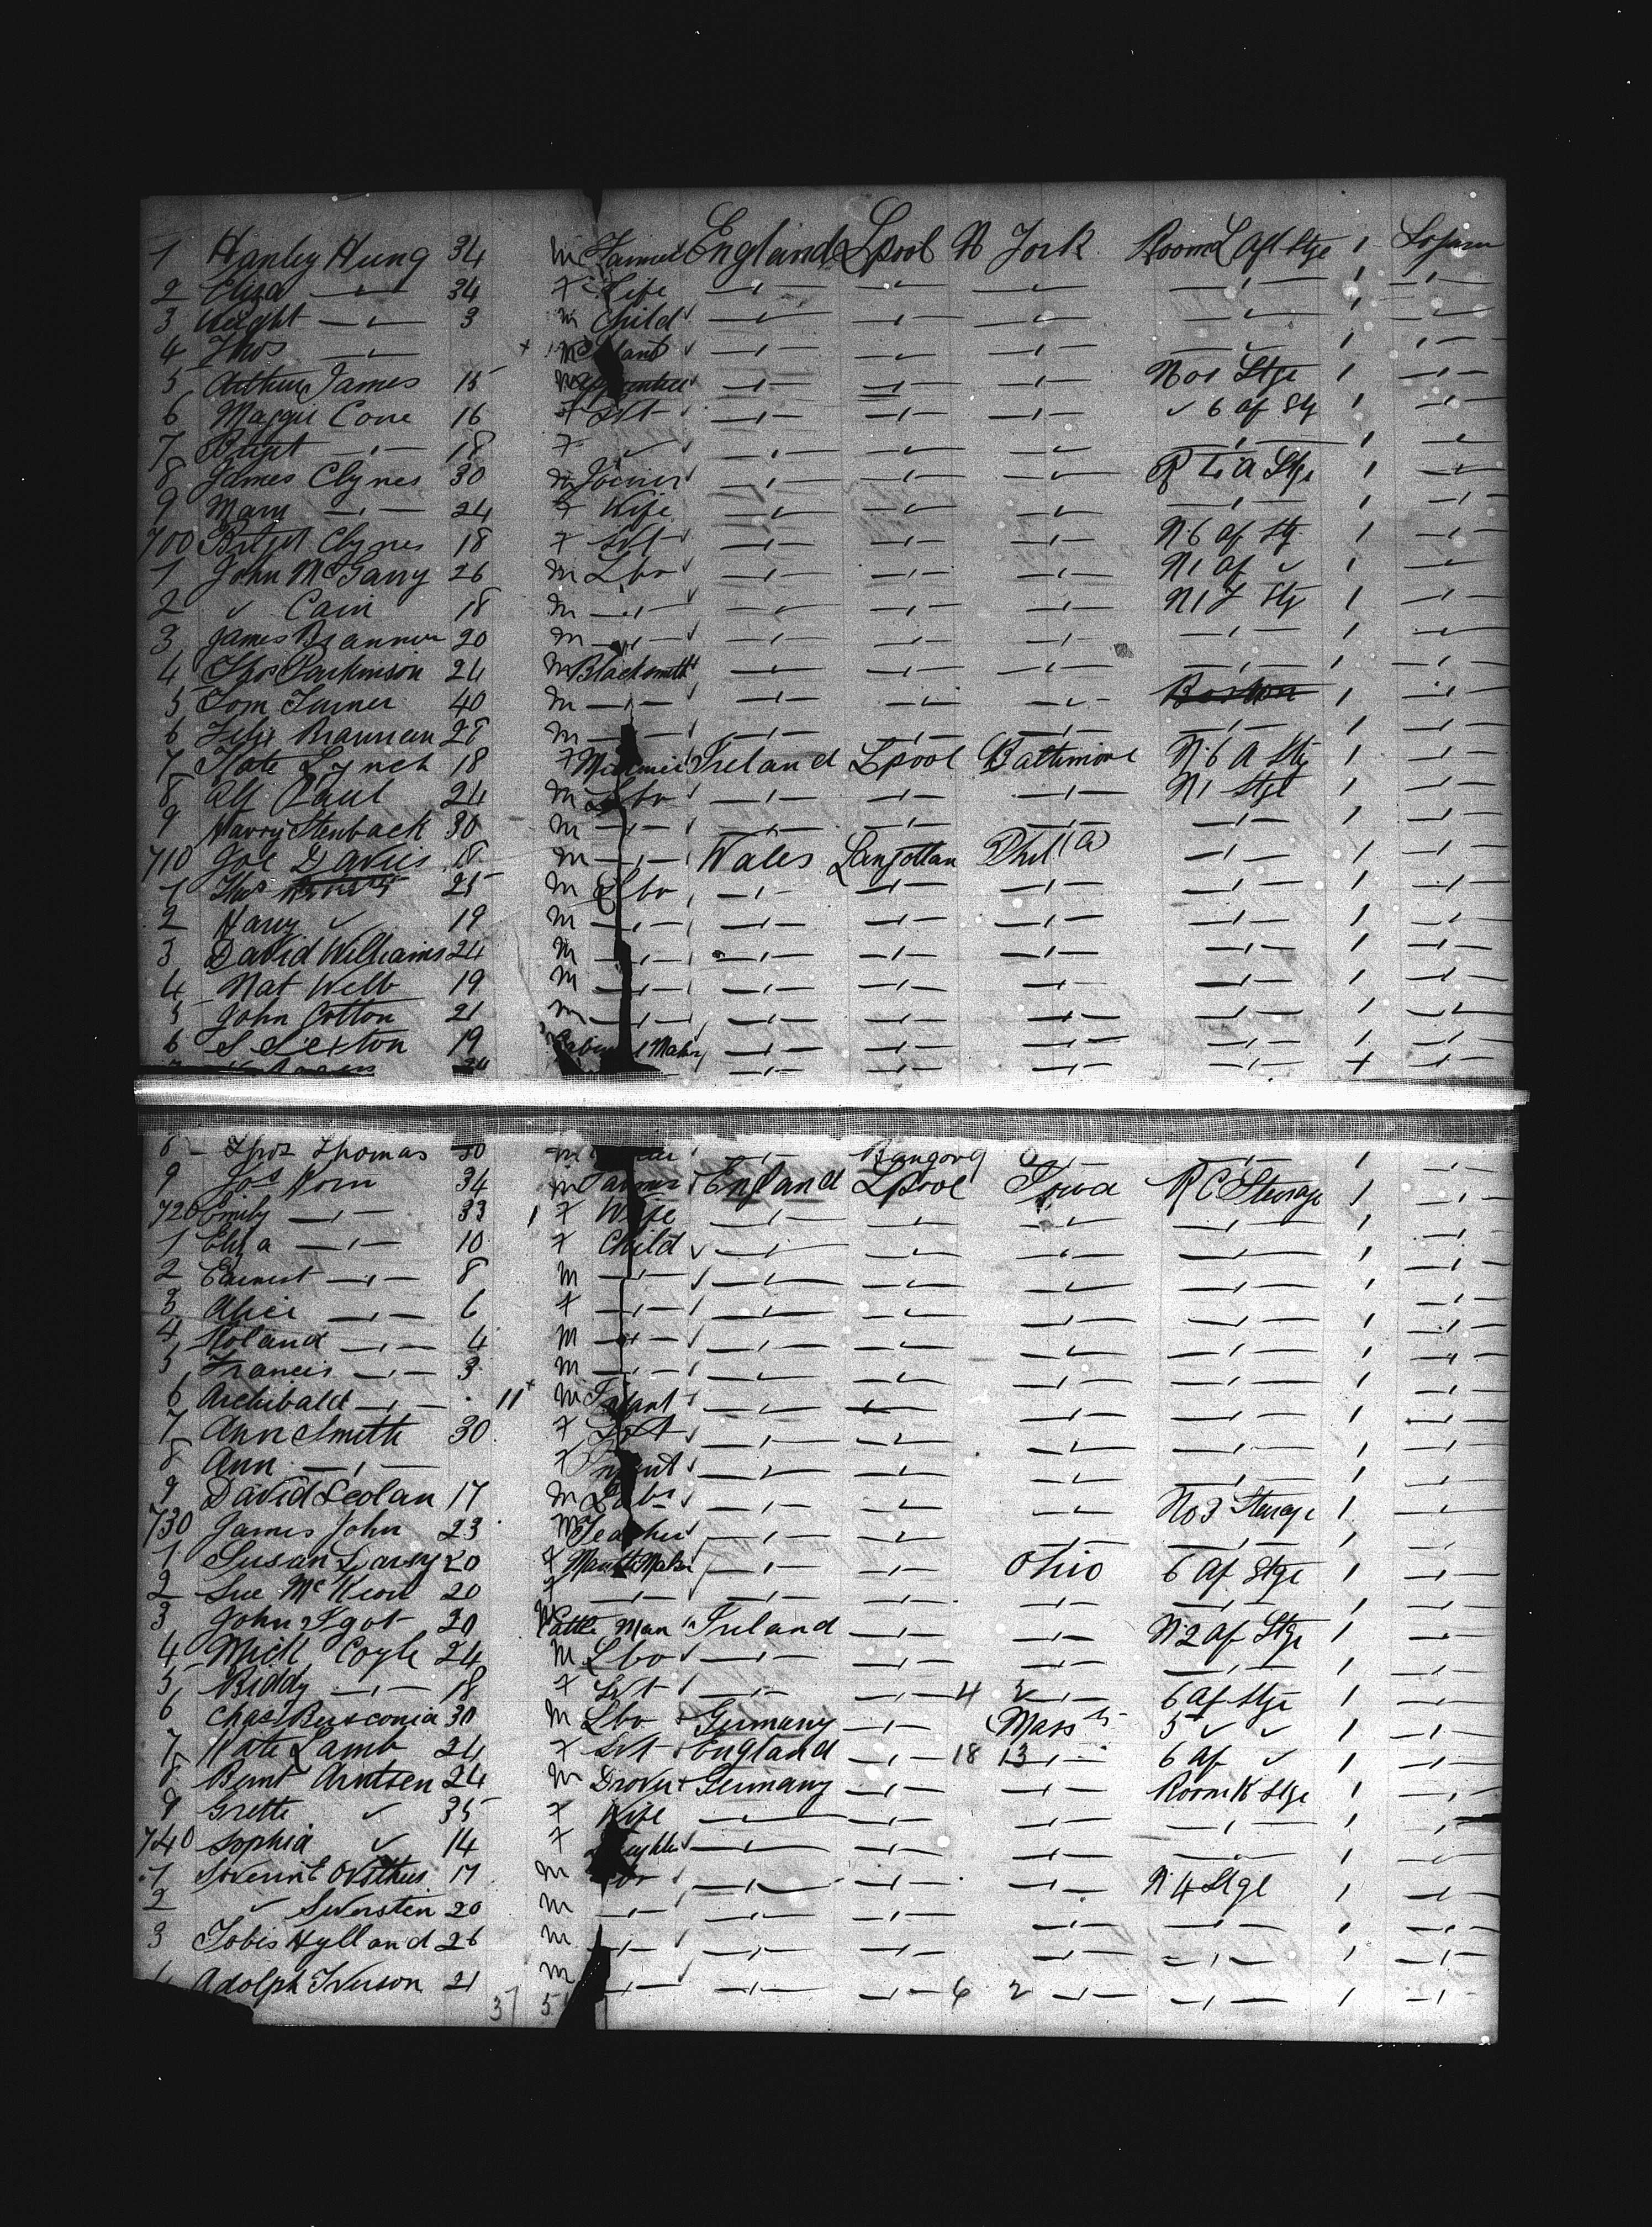 1 Hanley Hung 34 m Farmer England Lpool N York Room L Aft Stge 1
2 Eliza —"— 34 f Wife —"— —"— —"— —"— 1 —"—
3 —"— 3 m Child —"— —"— —"— —"— 1 —"—
4 Thos —"— m —"— —"— —"— —"— 1 —"—
5 Arthur James 15 m —"— —"— —"— No 1 Stge 1 —"—
6 Maggie Cone 16 f Svt —"— —"— —"— " 6 af Stg 1 —"—
7 Bridget —"— 18 f " —"— —"— —"— —"— 1 —"—
8 James Clynes 30 m Joiner —"— —"— —"— R L A Stge 1 —"—
9 Mary —"— 24 f Wife —"— —"— —"— —"— 1 —"—
700 Bridget Clynes 18 f Svt —"— —"— —"— N 6 af Stg 1 —"—
1 John McGarry 26 m Lbr —"— —"— —"— N 1 af " 1 —"—
2 " Cain 18 m —"— —"— —"— —"— N 1 F Stg 1 —"—
3 James Brannen 20 m —"— —"— —"— —"— —"— 1 —"—
4 Thos Parkinson 24 m Blacksmith —"— —"— —"— —"— 1 —"—
5 Tom Turner 40 m —"— —"— —"— —"— Boston 1 —"—
6 Felix Brannen 28 m —"— —"— —"— —"— —"— 1 —"—
7 Kate Lynch 18 f Ireland Lpool Baltimore N 6 A Stg 1 —"—
8 Alf Paul 24 m Lbr —"— —"— —"— N 1 Stge 1 —"—
9 Harry Stenback 30 m —"— —"— —"— —"— —"— 1 —"—
710 Joe Davies 18 m —"— Wales Langollan Phila —"— 1 —"—
1 Thos 25 m Lbr —"— —"— —"— —"— 1 —"—
2 Harry " 19 m —"— —"— —"— —"— —"— 1 —"—
3 David Williams 24 m —"— —"— —"— —"— —"— 1 —"—
4 Nat Webb 19 m —"— —"— —"— —"— —"— 1 —"—
5 John Cotton 21 m —"— —"— —"— —"— —"— 1 —"—
6 S Sexton 19 Cabinet Maker —"— —"— —"— —"— 1 —"—
8 Thos Thomas 30 m —"— —"— —"— 1 —"—
9 Jos Horn 34 m Farmer England Lpool Iowa R C Steerage 1 —"—
720 Emily —"— 33 1 f Wife —"— —"— —"— —"— 1 —"—
1 Eliza —"— 10 f Child —"— —"— —"— —"— 1 —"—
2 Earnest —"— 8 m —"— —"— —"— —"— —"— 1 —"—
3 Alice —"— 6 f —"— —"— —"— —"— —"— 1 —"—
4 Roland —"— 4 m —"— —"— —"— —"— —"— 1 —"—
5 Francis —"— 3 m —"— —"— —"— —"— —"— 1 —"—
6 Archibald —"— 11 m Infant —"— —"— —"— —"— 1 —"—
7 Ann Smith 30 f —"— —"— —"— —"— 1 —"—
8 Ann —"— f Infant —"— —"— —"— —"— 1 —"—
9 David Scolan 17 m Labr —"— —"— —"— No 3 Steerage 1 —"—
730 James John 23 m Teacher —"— —"— —"— —"— 1 —"—
1 Susan Darsy 20 f Mantle Maker —"— —"— Ohio 6 Af Stge 1 —"—
2 Sue McKeon 20 f —"— —"— —"— —"— —"— 1 —"—
3 John Igot 30 Cattle Man Ireland —"— —"— N 2 af Stge 1 —"—
4 Mick Coyle 24 m Lbr —"— —"— —"— —"— 1 —"—
5 Biddy —"— 18 f Svt —"— —"— 4 —"— 6 af Stge 1 —"—
6 Chas Busconia 30 m Lbr Germany —"— Mass 5 " " 1 —"—
7 Kate Lamb 24 f Svt England —"— 18 13 —"— 6 af " 1 —"—
8 Bernt Arntsen 24 m Drover Germany —"— —"— Room K Stge 1 —"—
9 Grette " 35 f Wife —"— —"— —"— —"— 1 —"—
740 Sophia " 14 f —"— —"— —"— —"— 1 —"—
1 17 m —"— —"— —"— N 4 Stge 1 —"—
2 " Swersten 20 m —"— —"— —"— —"— —"— 1 —"—
3 Tobis Hylland 26 m —"— —"— —"— —"— —"— 1 —"—
Adolph Iverson 21 m —"— —"— —"— 6 2 —"— —"— 1 —"—
37 5